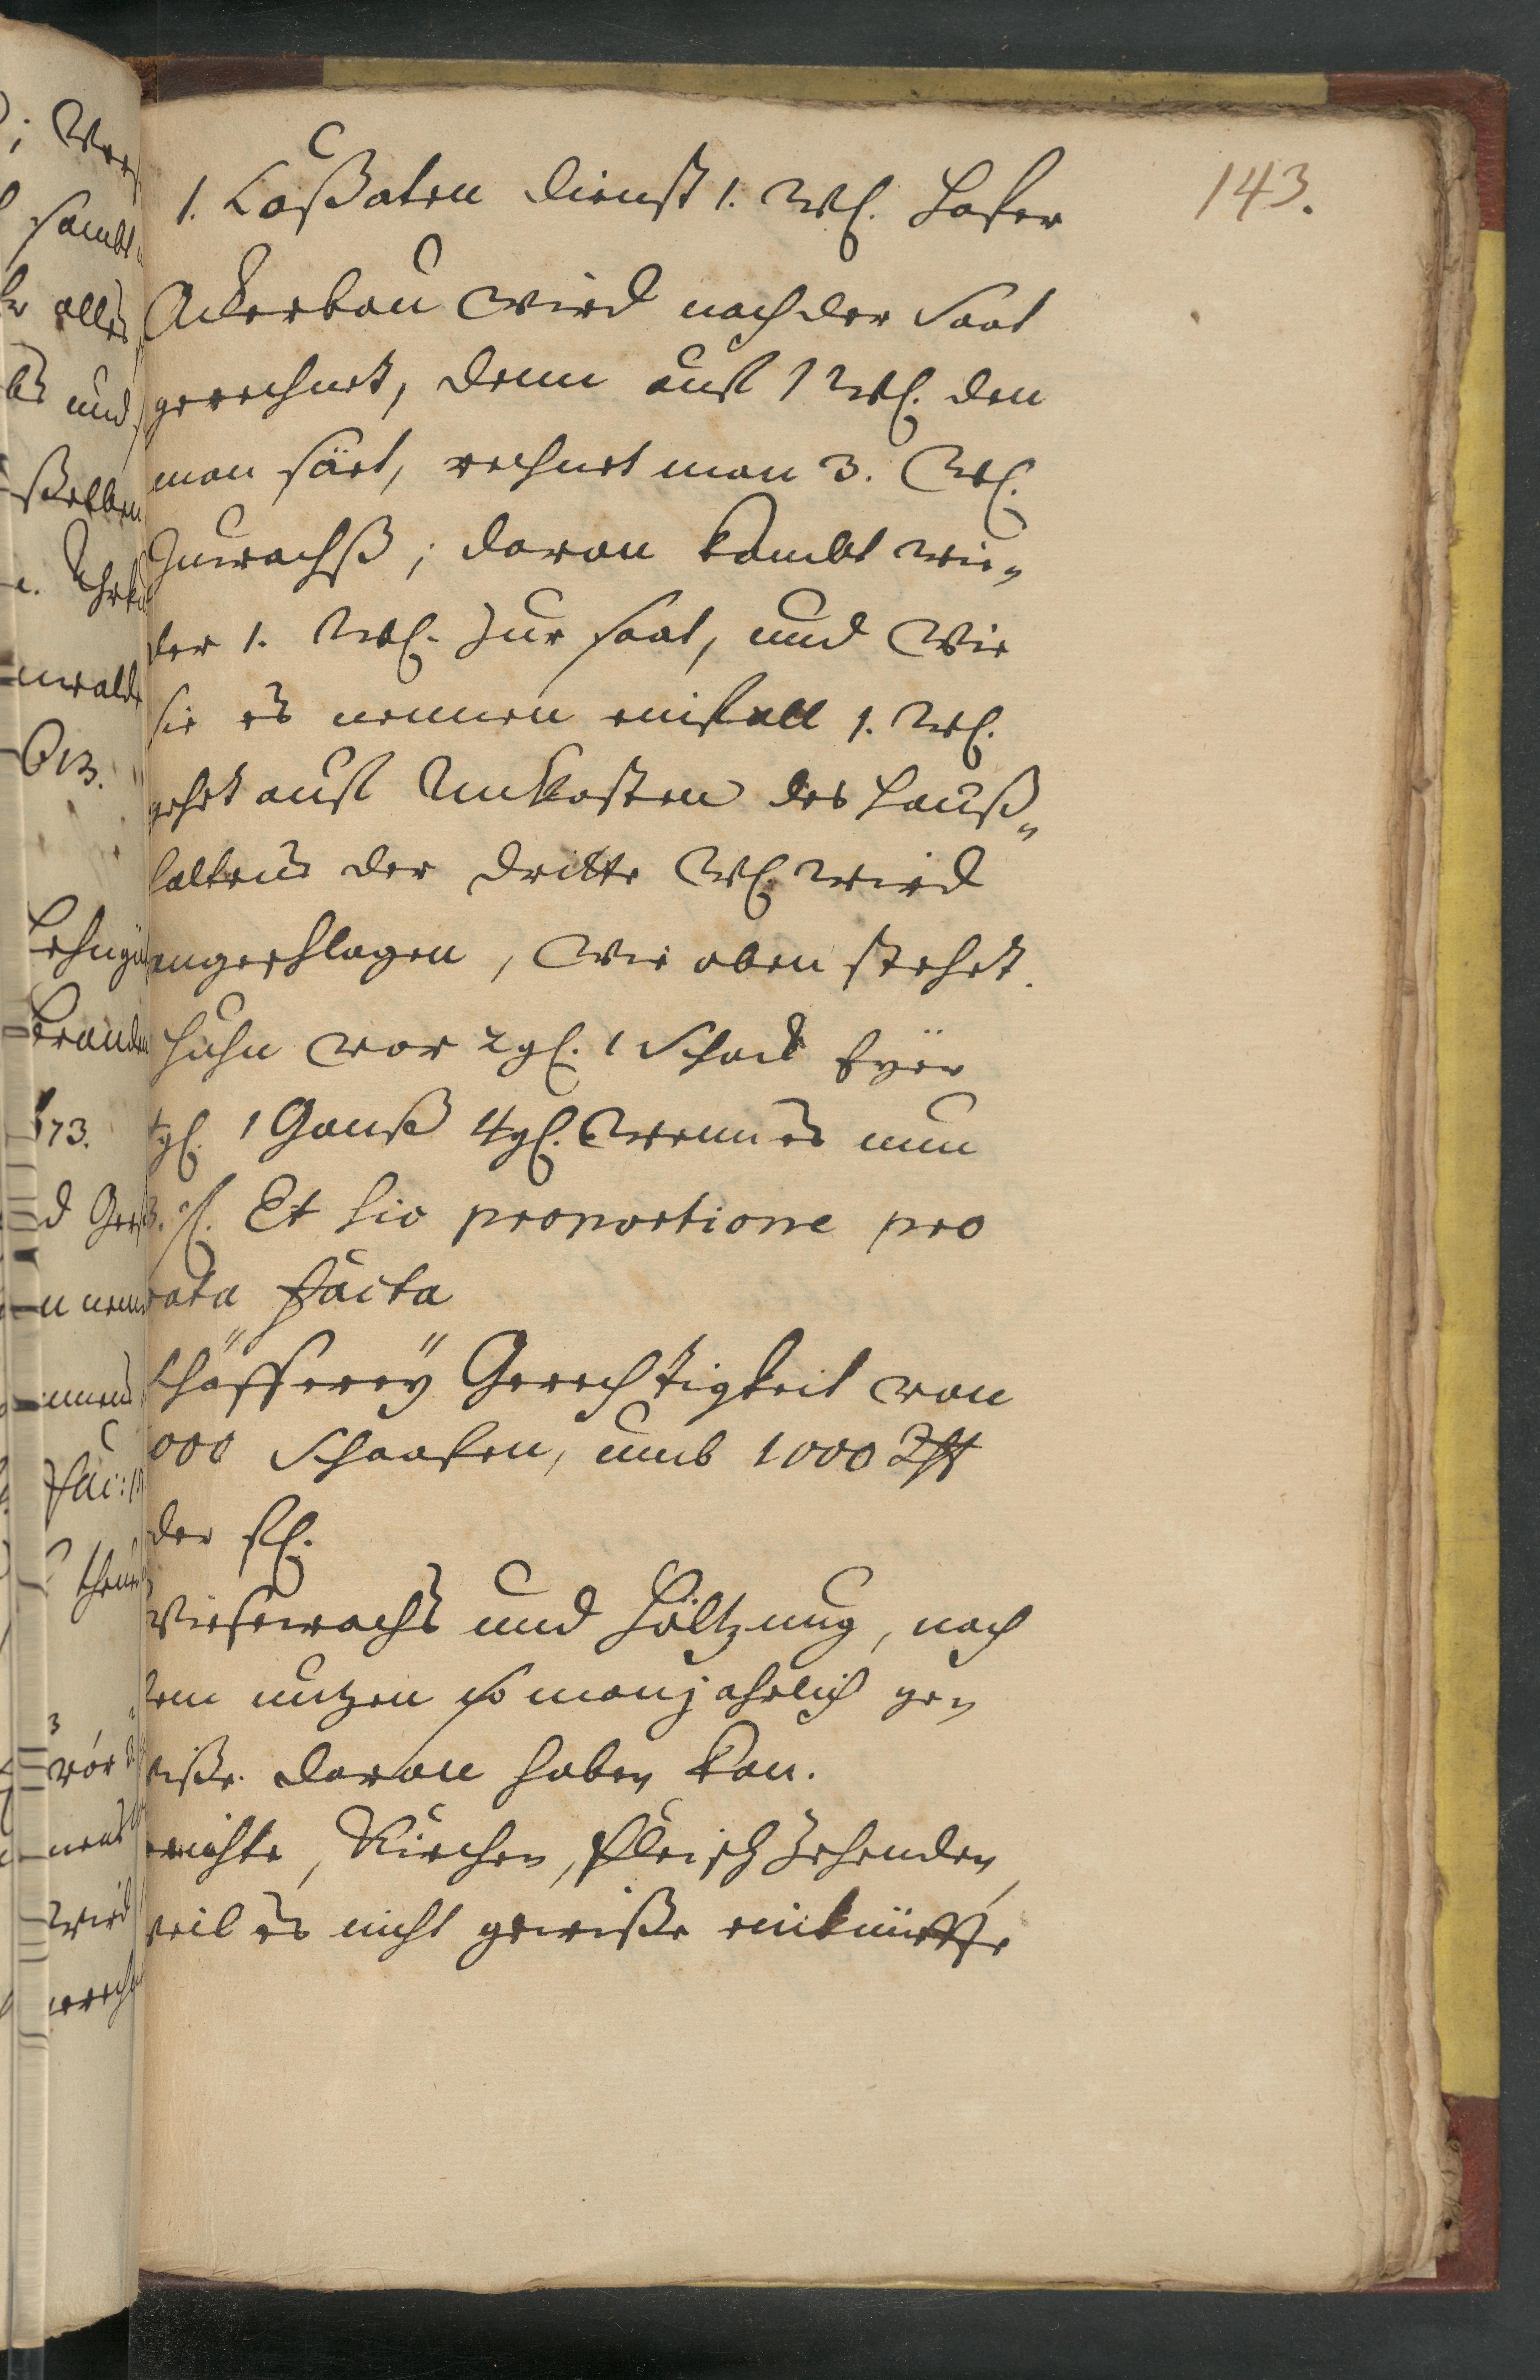 143.
1. Coßaten dienst 1. Wß. Hafer
Ackerbau wird nach der Saat
gerechnet, denn auf 1 Wß. den
man säet, rechnet man 3. Wß.
Zuwachß; davon kombt wie„
der 1. Wß. zur saat, und wie
sie es nennen einfall 1. Wß.
gehet auf Unkosten des Hauß„
haltens der dritte Wß wird
angeschlagen, wie oben stehet.
Huhn vor 2 gß. 1 Schock Eyer
gß. 1 Ganß 4 gß. Wenn es nun
Et sic proportione pro
rata facta
Schäfferey Gerechtigkeit von
000 Schaafen, umb 1000
der fß.
Wiesewachs und Höltzung, nach
dem nutzen so man jahrlich ge„
wiße davon haben kan.
Kirchen, fleisch Zehenden,
weil es nicht gewiße einkünffte